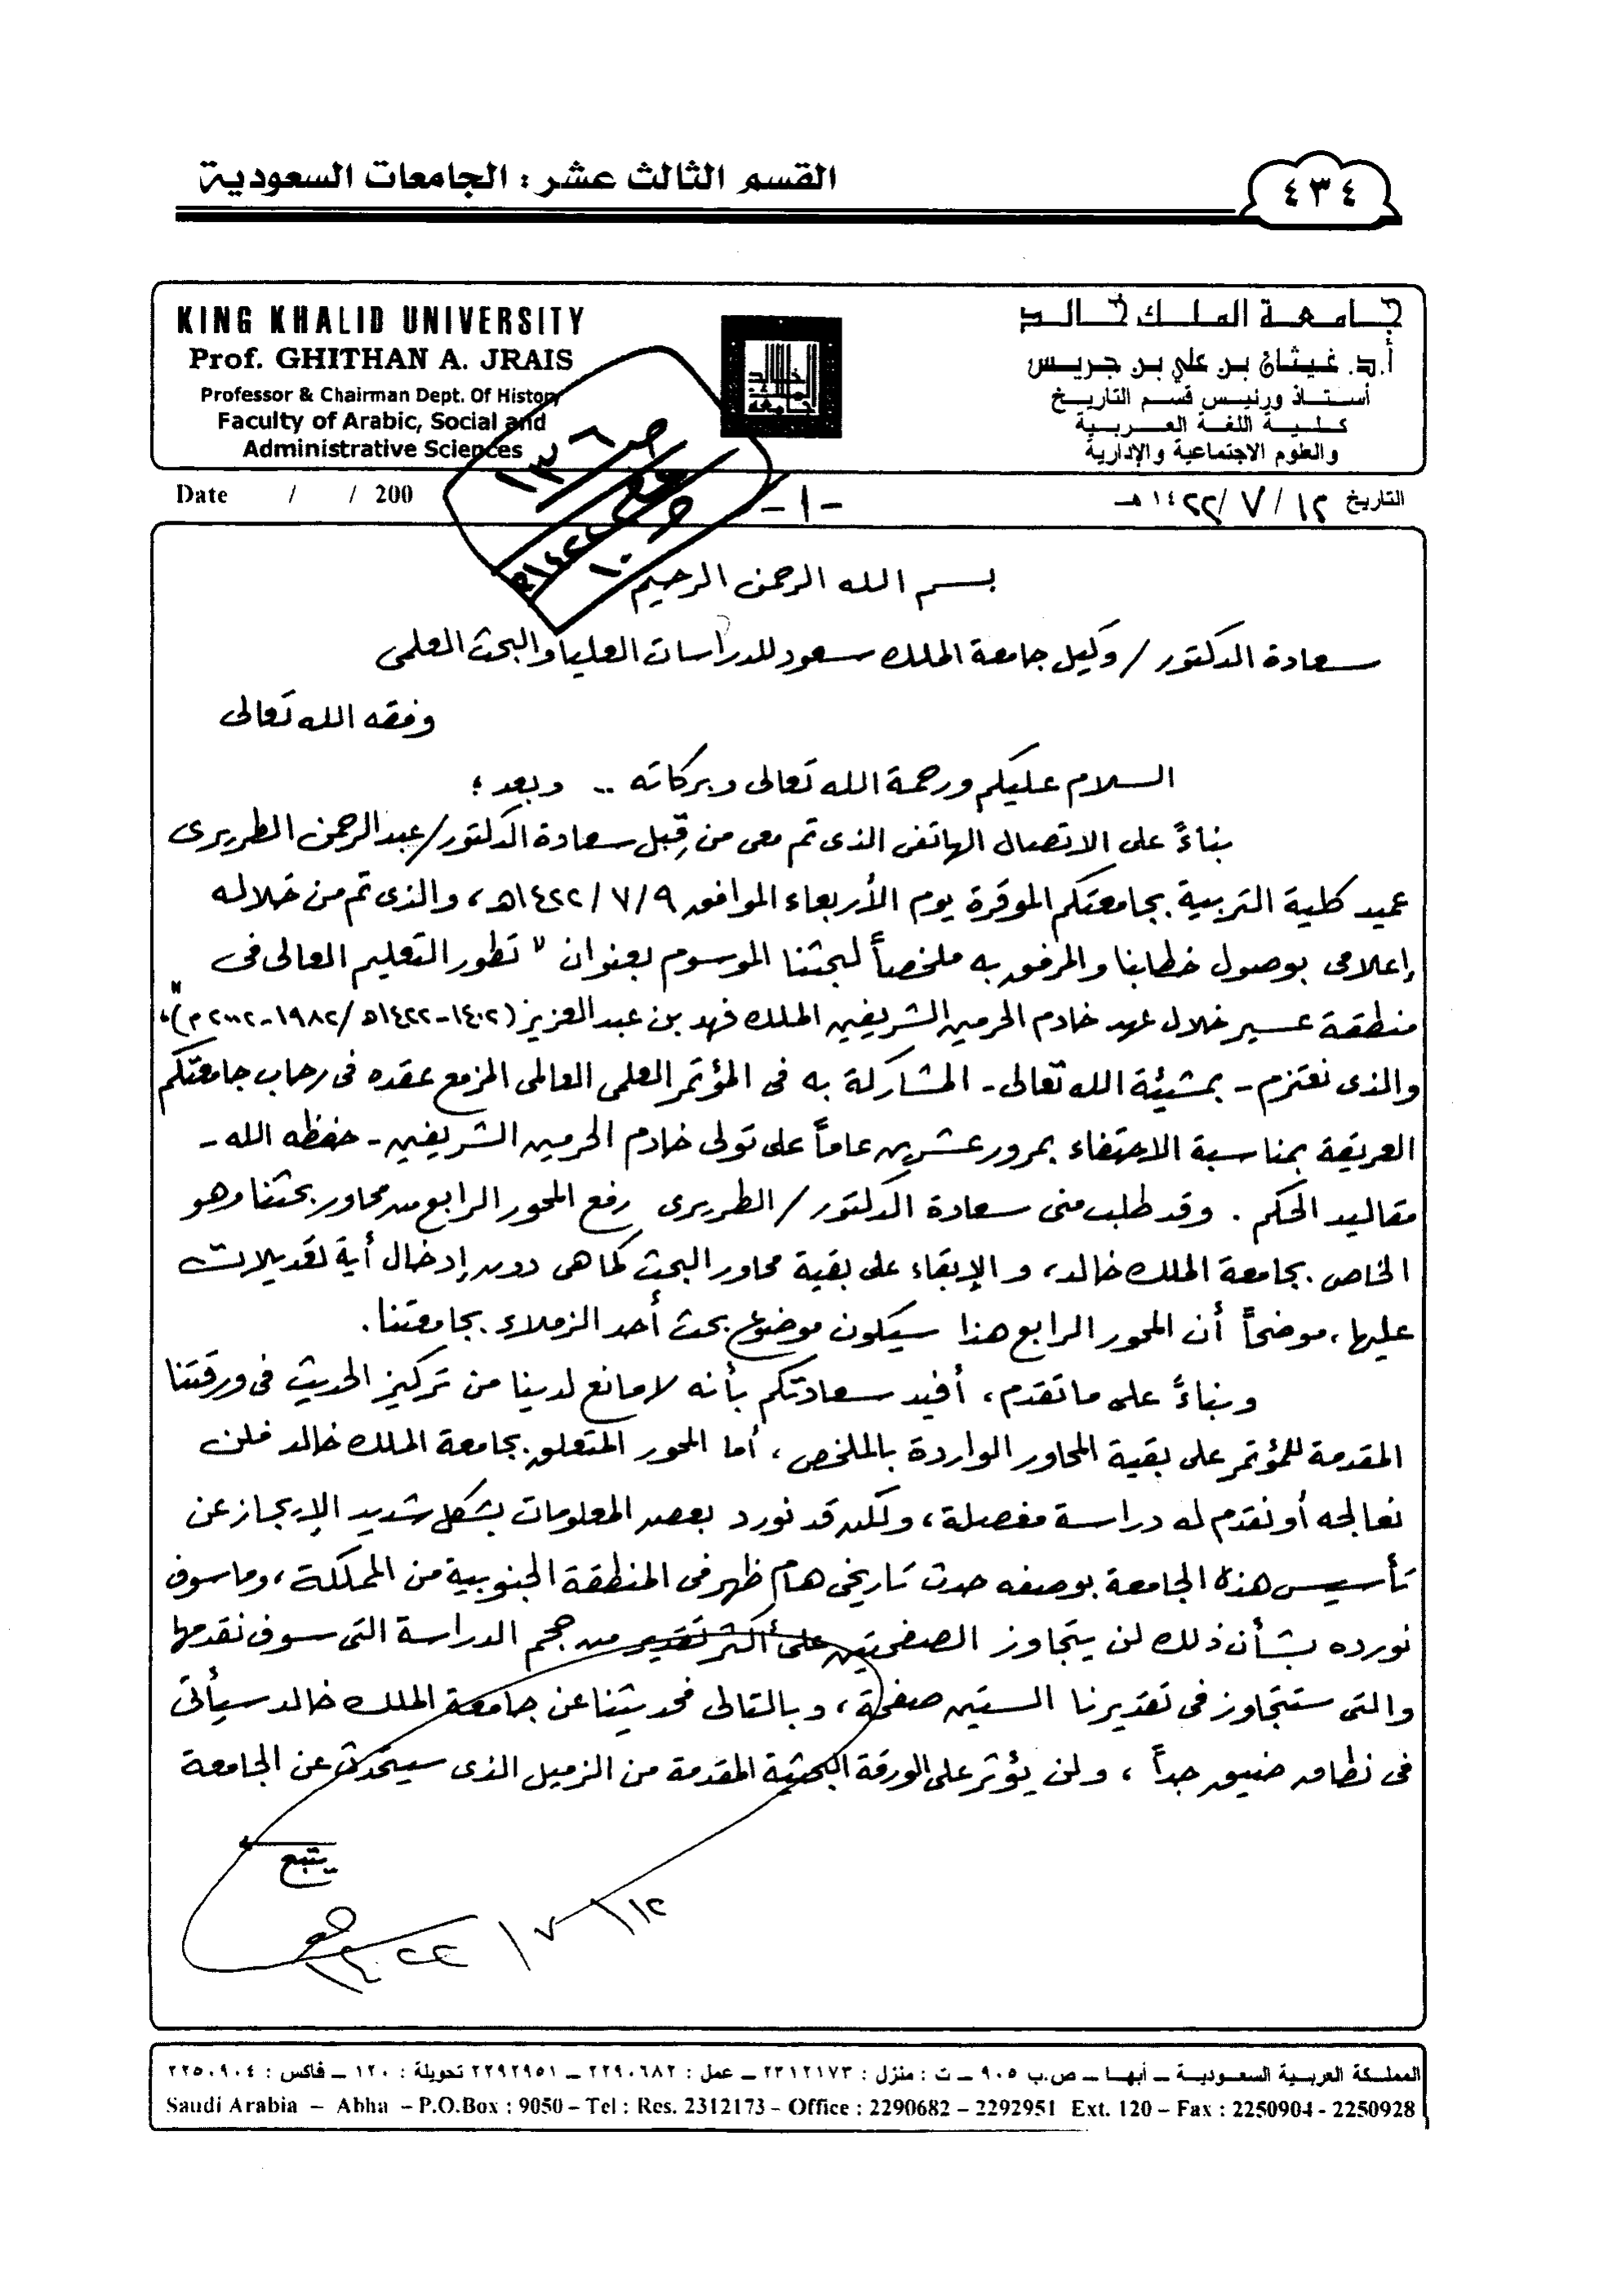 القسم الثالث عشر : الجامعات السعودية
٤٣٤
KING KHALID UNIVERSITY
Prof. GHITHAN A. JRAIS
Professor & Chairman Dept. Of History
Faculty of Arabic, Social and
Administrative Sciences
جامعة الملك خالد
أ.د. غيثان بن علي بن جريس
أستاذ ورئيس قسم التاريخ
كلية اللغة العربية
والعلوم الاجتماعية والإدارية
Date / / 200
-١-
التاريخ ١٢/ ٧/ ١٤٢٢ هـ
بسم الله الرحمن الرحيم
سعادة الدكتور / وكيل جامعة الملك سعود للدراسات العليا والبحث العلمى
وفقه الله تعالى
السلام عليكم ورحمة الله تعالى وبركاته .. وبعد ؛
بناءً على الاتصال الهاتفى الذى تم معى من قِبل سعادة الدكتور/ عبد الرحمن الطريرى
عميد كلية التربية بجامعتكم الموقرة يوم الأربعاء الموافق ٩/ ٧/ ١٤٢٢هـ، والذى تم من خلاله
إعلامى بوصول خطابنا والمرفق به ملخصاً لبحثنا الموسوم بعنوان " تطور التعليم العالى فى
منطقة عسير خلال عهد خادم الحرمين الشريفين الملك فهد بن عبد العزيز (١٤٠٢-١٤٢٢هـ /١٩٨٢-٢٠٠٢م)"،
والذى نعتزم - بمشيئة الله تعالى - المشاركة به فى المؤتمر العلمى العالمى المزمع عقده فى رحاب جامعتكم
العريقة بمناسبة الاحتفاء بمرور عشرين عاماً على تولى خادم الحرمين الشريفين - حفظه الله -
مقاليد الحكم . وقد طلب منى سعادة الدكتور / الطريرى رفع المحور الرابع من محاور بحثنا وهو
الخاص بجامعة الملك خالد، والإبقاء على بقية محاور البحث كما هى دون إدخال أية تعديلات
عليها، موضحاً أن المحور الرابع هذا سيكون موضوع بحث أحد الزملاء بجامعتنا.
وبناءً على ما تقدم، أفيد سعادتكم بأنه لا مانع لدينا من تركيز الحديث فى ورقتنا
المقدمة للمؤتمر على بقية المحاور الواردة بالملخص، أما المحور المتعلق بجامعة الملك خالد فلن
نعالجه أو نقدم له دراسة مفصلة، ولكن قد نورد بعض المعلومات بشكل شديد الإيجاز عن
تأسيس هذه الجامعة بوصفه حدث تاريخى هام ظهر فى المنطقة الجنوبية من المملكة، وما سوف
نورده بشأن ذلك لن يتجاوز الصفحتين على أكثر تقدير من حجم الدراسة التى سوف نقدمها
والتى ستتجاوز فى تقديرنا الستين صفحة، وبالتالى فحديثنا عن جامعة الملك خالد سيأتى
فى نطاق ضيق جداً ، ولن يؤثر على الورقة البحثية المقدمة من الزميل الذى سيتحدث عن الجامعة
يتبع
١٢/ ٧/ ١٤٢٢
المملكة العربية السعودية – أبها – ص.ب ٩٠٥ – ت : منزل : ٢٣١٢١٧٣ – عمل : ٢٢٩٠٦٨٢ – ٢٢٩٢٩٥١ تحويلة : ١٢٠ – فاكس : ٢٢٥٠٩٠٤
Saudi Arabia – Abha – P.O.Box : 9050 – Tel : Res. 2312173 – Office : 2290682 – 2292951 Ext. 120 – Fax : 2250904 - 2250928